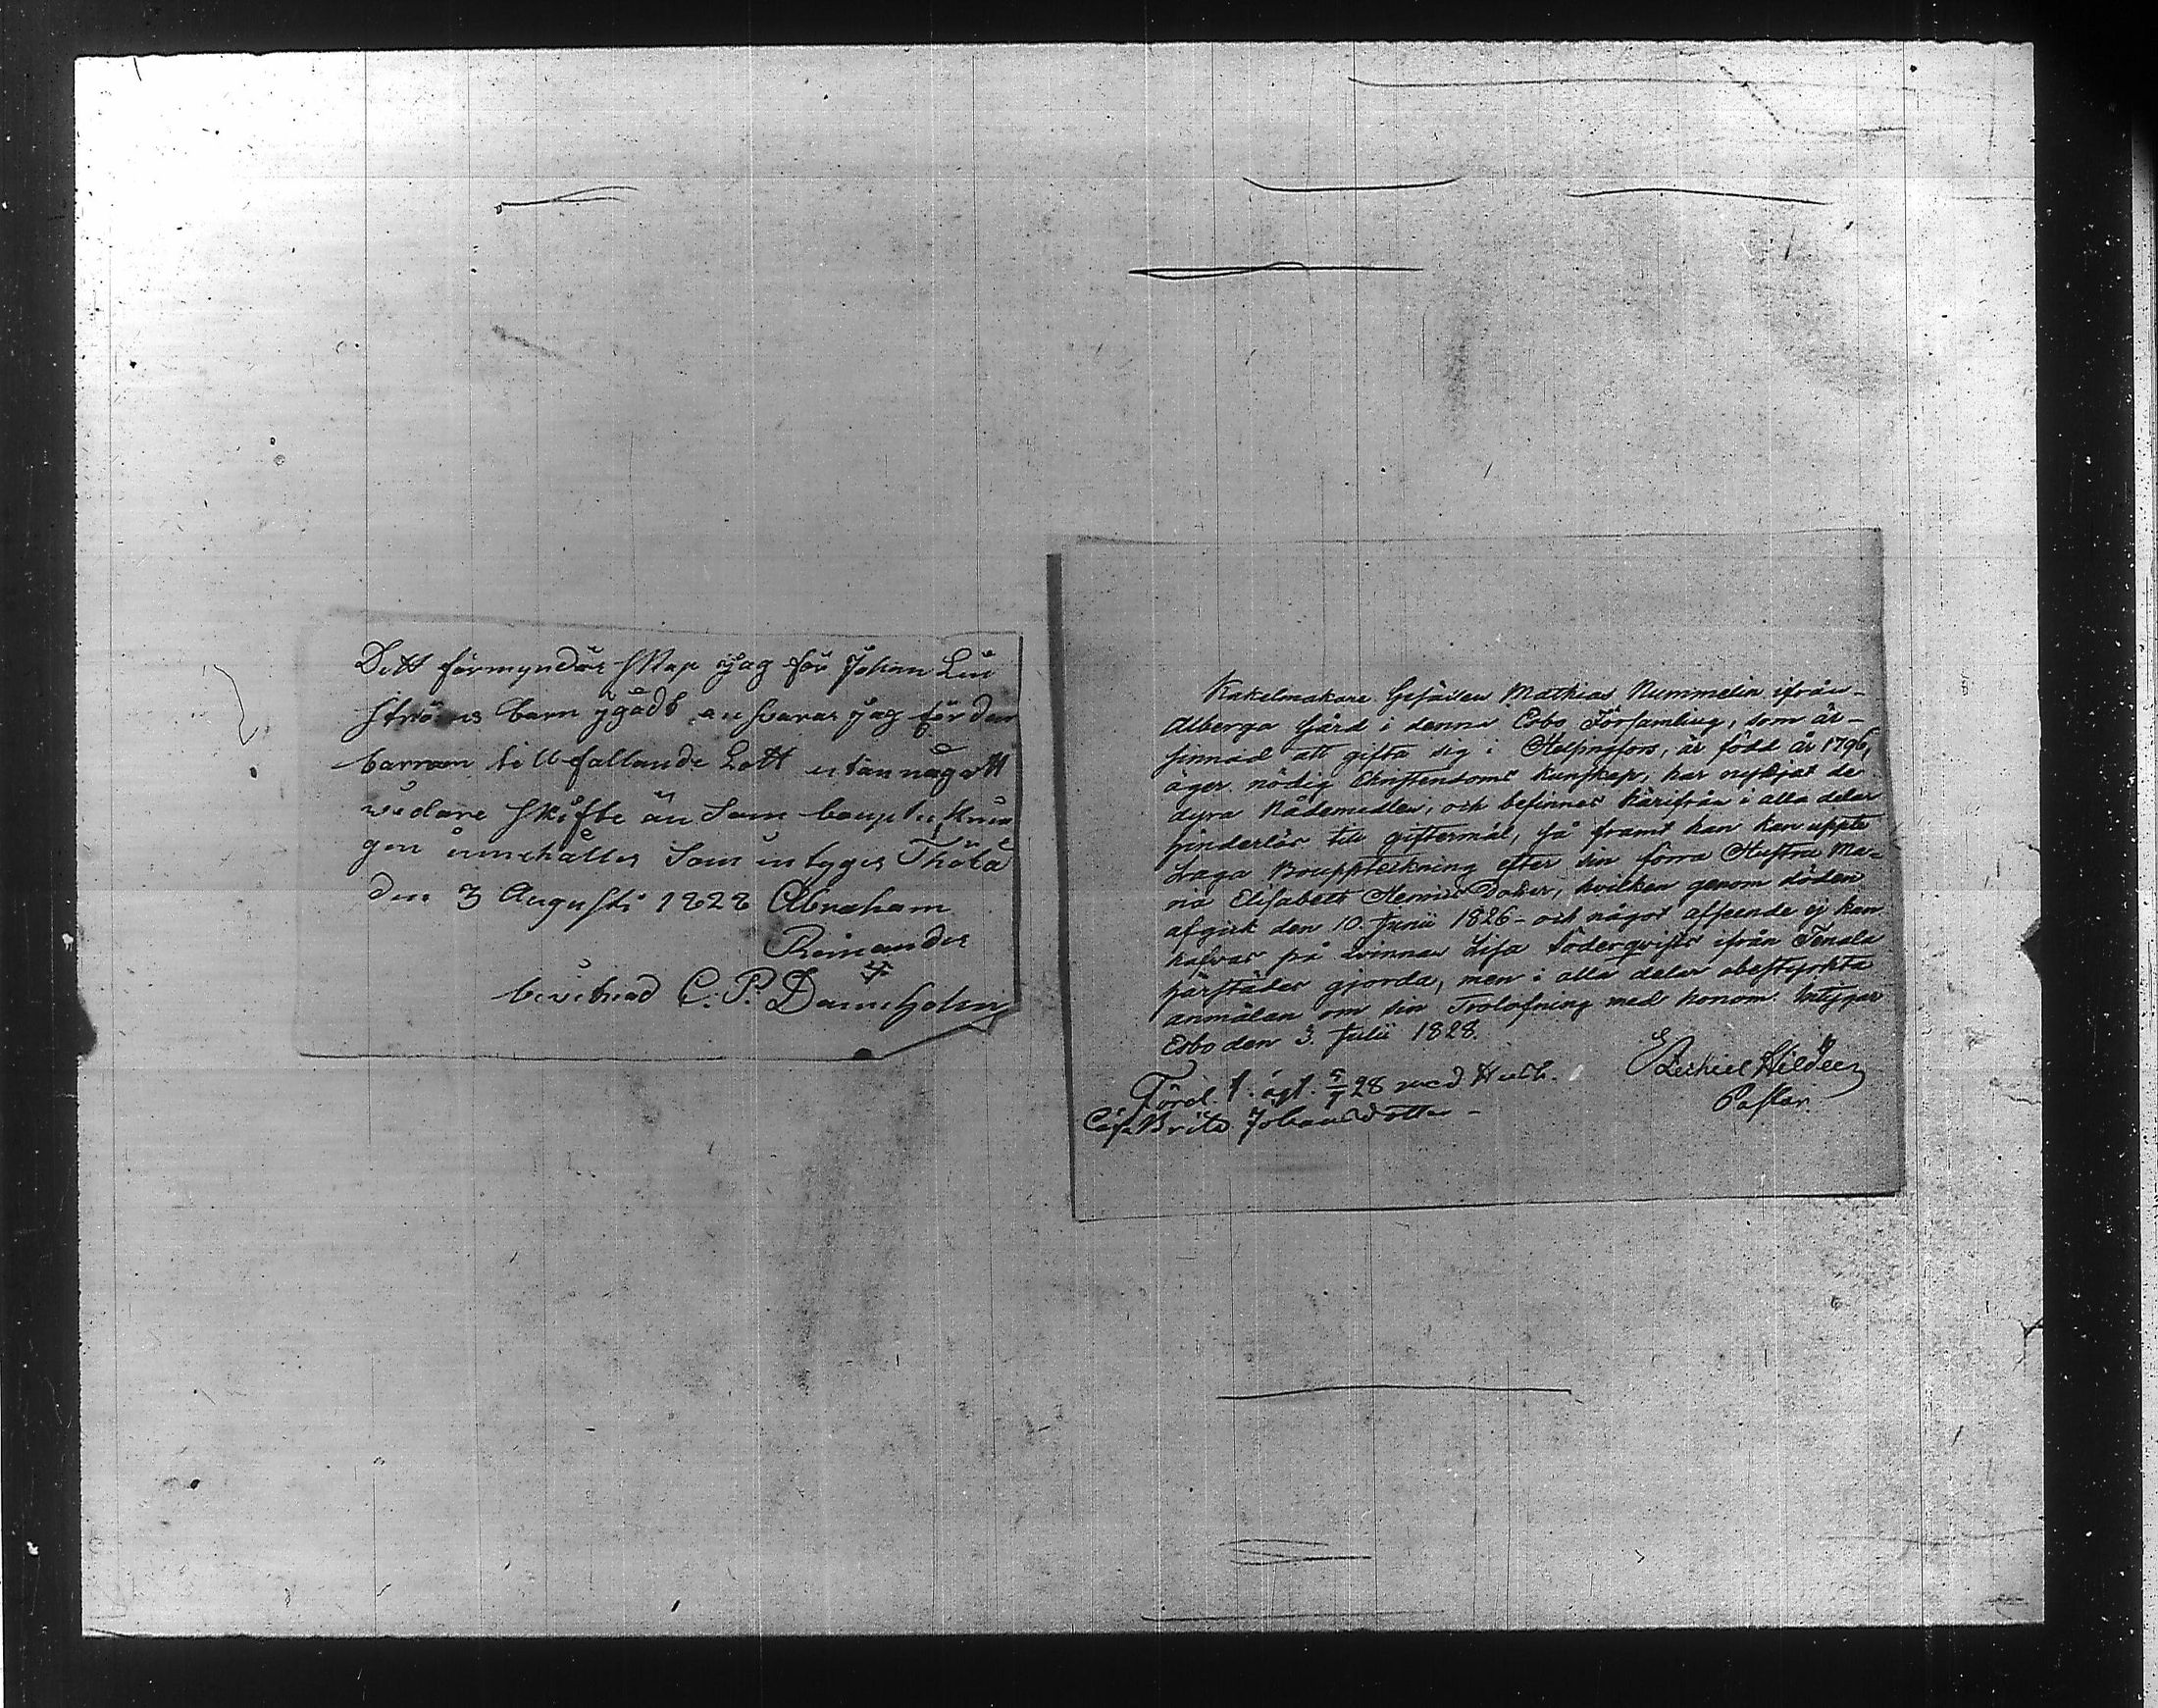 Dett förmyndar skap Jag för Johan Lin
ströms barn ygådt ansvarar Jag för den
barnen till fallande Lott utan någott
widare skifte än Som bouptecknin
gen innehåller Som intyges Thöla
den 3 Augusti 1828 Abraham
Reinander
bevitnad C. P. Dannholm
Kakelmakare Gesällen Mathias Nummelin ifrån
Alberga Gård i denna Esbo Församling, som är
sinnad att gifta sig i Helsingfors, är född år 1796,
äger nödig Christendoms kunskap, har nyttjat de
dyra Nådemedlen, och befinnes härifrån i alla delar
hinderlös till giftermål, så framt han kan uppte
Laga Bouppteckning efter sin förra Hustru Ma-
ria Elisabeth Henrics Doter, hvilken genom döden
afgick den 10. Junii 1826 - och något afseende ej kan
hafvas på qvinnan Lisa Söderqvists ifrån Tenala
härstädes gjorda, men i alla delar obestyrkta
anmälan om sin Trolofning med honom. Intygar
Esbo den 3. Julii 1828.
Ezechiel Hildeen
Pastor.
Förel. 1. ägt. 5/7 28 med
Caj. Brita Johansdotter -